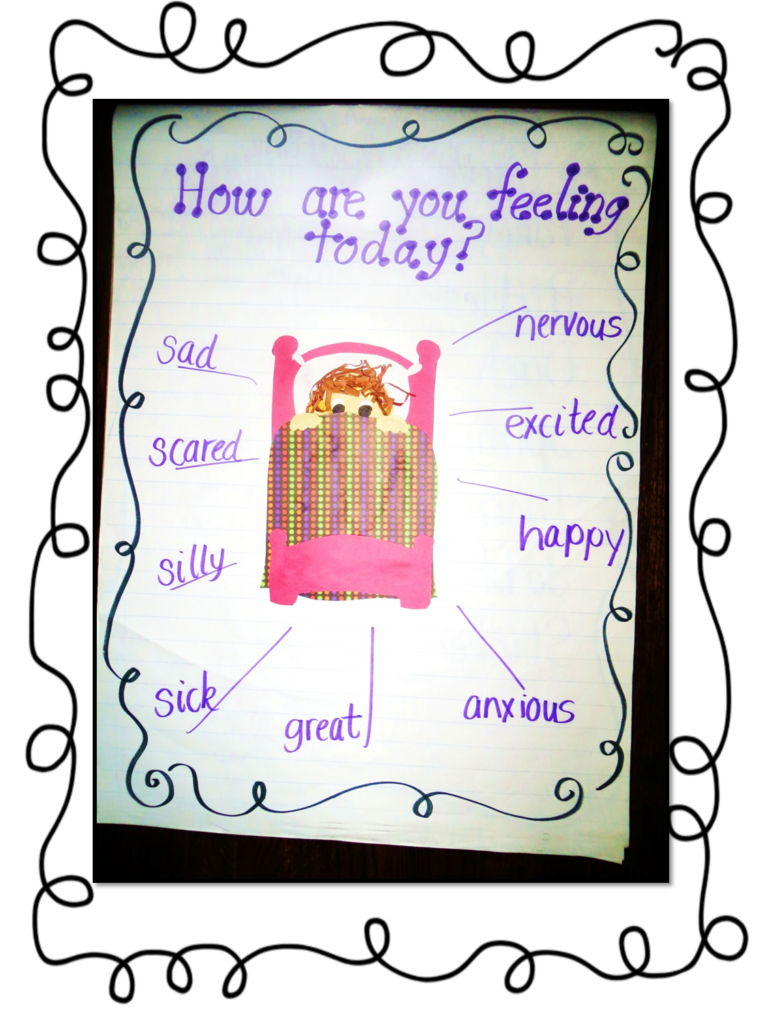 How are you feeling
today?
sad
scared
silly
sick
great
nervous
excited
happy
anxious